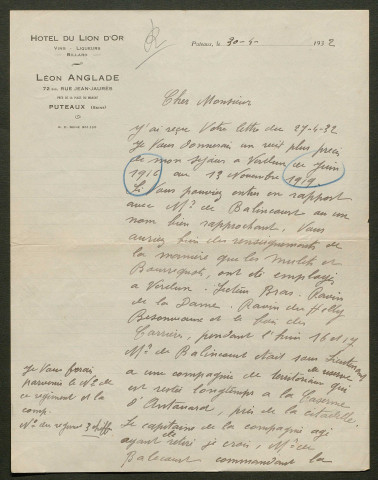 HOTEL DU LION D'OR
VINS - LIQUEURS
BILLARD
LÉON ANGLADE
72 bis, RUE JEAN-JAURÈS
PUTEAUX (Seine)
Puteaux, le 30-4- 1932
Cher Monsieur
J'ai reçu Votre lettre du 27-4-32
Je Vous donnerai un récit plus précis
de mon séjour a Verdun de Juin
1916 au 12 Novembre 1919.
Si Vous pouviez entrer en rapport
avec Mr de Balincourt ou un
nom bien rapprochant, Vous
auriez bien des renseignements de
la manière que les mulets et
Bourriquots, ont été employés
a Verdun. Secteur Bras - Ravin
de la Dame - Ravin du Helly
Bezonvaux et le bois des
Carrière, pendant l'hiver 16 et 17
Mr de Balincourt était sous Lieutenant
de réserve
a une compagnie de territoriaux qui
est resté longtemps a la Caserne
d'Anthouard, près de la citadelle.
Le capitaine de la compagnie agé
ayant été retiré je crois, Mr de
Balincourt commandait la
Je Vous ferai
parvenir le No de
ce régiment et la
comp.
No du régim 3 chiffres